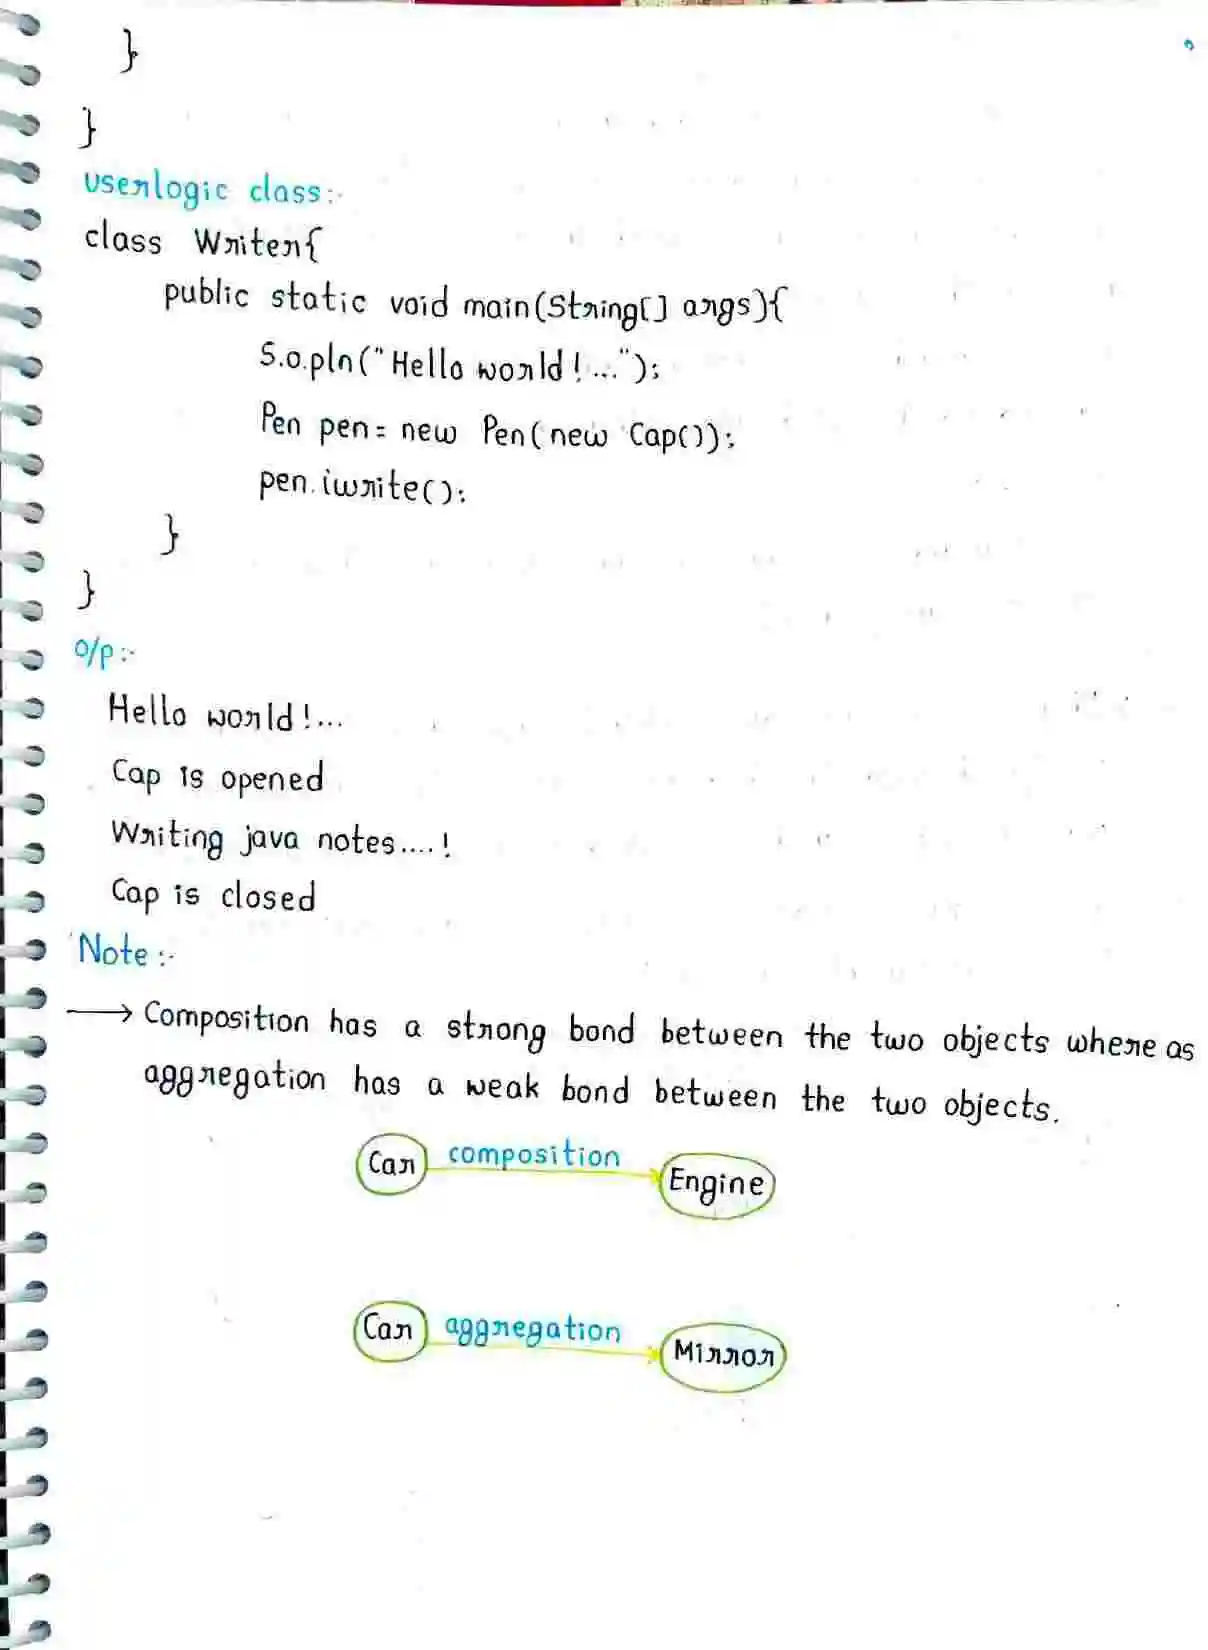 }
}
userlogic class:-
class Writer{
public static void main(String[] args){
S.o.pln("Hello world!...");
Pen pen = new Pen(new Cap());
pen.iwrite();
}
}
o/p:-
Hello world!...
Cap is opened
Writing java notes....!
Cap is closed
Note:-
→ Composition has a strong bond between the two objects where as
aggregation has a weak bond between the two objects.
Car composition Engine
Car aggregation Mirror